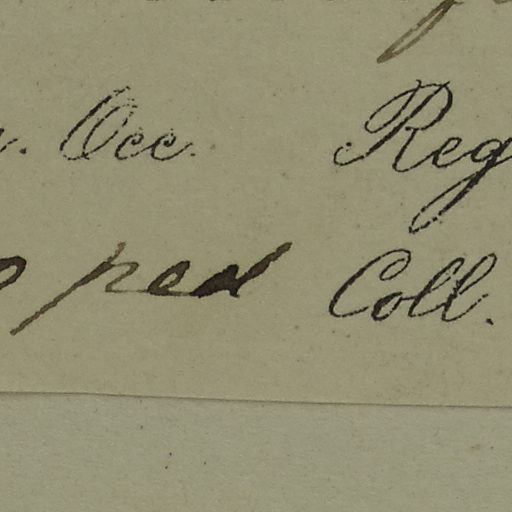 Occ. Reg
ped Coll.